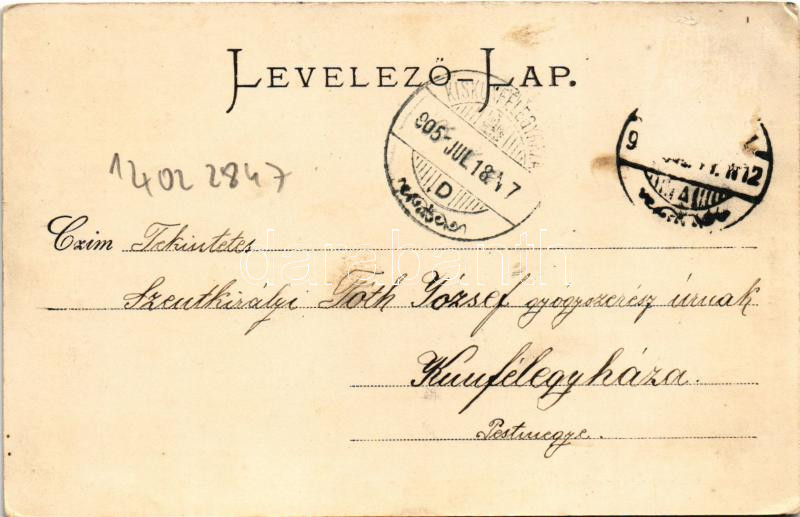 LEVELEZŐ-LAP.
KISKUNFÉLEGYHÁZA
905 JUL 18 7
D
9
12
A
1402 2847
Czim Tekintetes
Szentkirályi Tóth József gyogyszerész úrnak
Kunfélegyháza.
Pestmegye.
darabanth